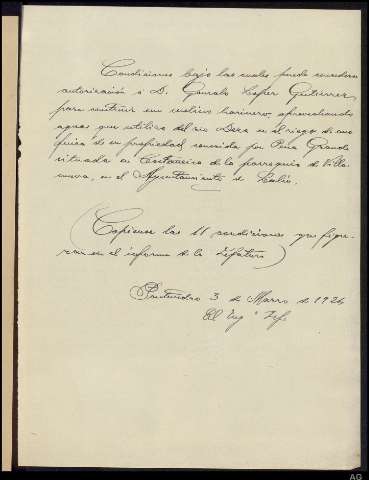 Condiciones bajo las cuales puede concederse
autorización a D. Gonzalo López Gutiérrez,
para construir un molino harinero, aprovechando
aguas que utiliza del río Deza en el riego de una
finca de su propiedad, conocida por Peña Grande
situada en de la parroquia de Villa
nueva, en el Ayuntamiento de Lalín.
(Copiense las 11 condiciones que figu-
ran en el informe de la Jefatura)
Pontevedra 3 de Marzo de 1926
El Ing.º Jefe
AG